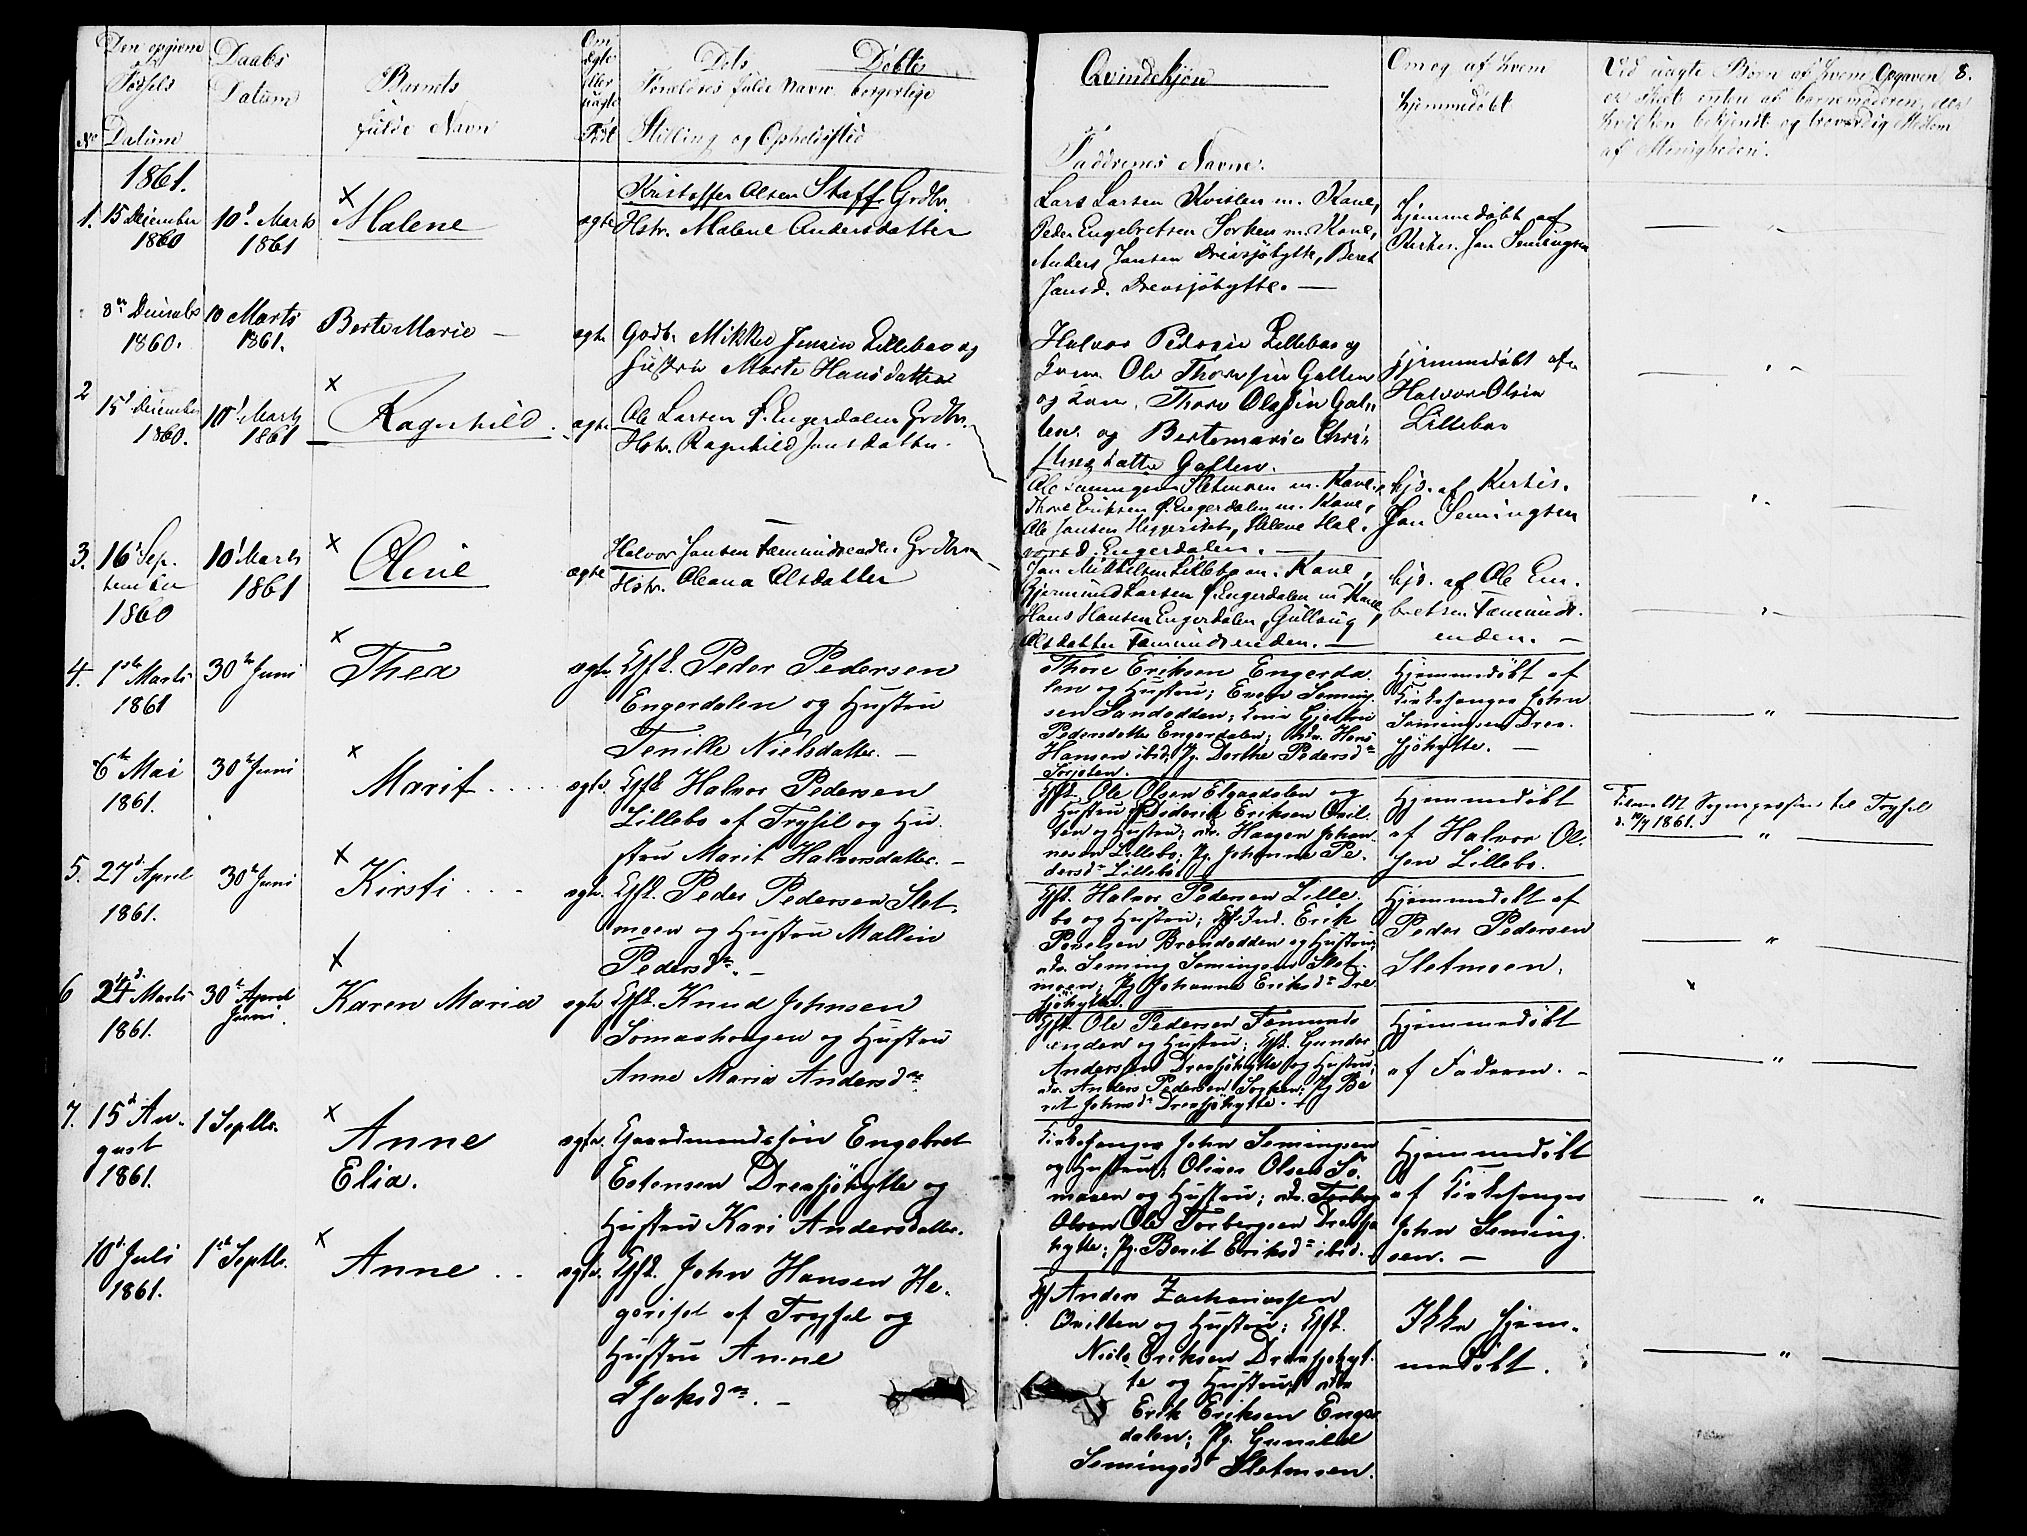 Døbte Qvindekjøn
8.
No
Den opgivne Fødsels Datum
Daabs Datum
Barnets fulde Navn
Om ægte eller uægte Født
Dets Forældres fulde Navn borgerlige
Stilling og Opholdsted
Faddrenes Navne.
Om og af hvem hjemmedøbt
Vid uægte Børn af hvem Opgaven
er skeet enten af barnemoderen, eller
hvilken bekjendt og troværdig Medlem
af Menigheden.
1861.
1. 15 December 1860
10d Marts 1861
× Malene
ægte
Kristoffer Olsen Staff Grdbr.
Hstr. Malene Andersdatter
Lars Larsen Kvislen m. Kone,
Peder Engebretsen Sorken m. Kone,
Anders Jansen Drevsjöhytte, Beret
Jansd. Drevsjöhytte. —
Hjemmedøbt af
Kirkes. Jan Semingsen
8de Decembr 1860.
10 Marts 1861.
Berte Marie —
ægte
Grdb. Mikkel Jensen Lillebo og
Hustru Marte Hansdatter
Halvor Pedersen Lillebo og
Kone. Ole Thoresen Galten
og Kone, Thore Olsen Gal-
ten og Bertemarie Chri-
stensdatter Galten.
Hjemmedøbt af
Halvor Olsen
Lillebo
2
15d December 1860.
10d Marts 1861
× Ragnhild.
ægte
Ole Larsen S. Engerdalen Grdbr.
Hstr. Ragnhild Jansdatter.
Ole Semingsen Sletmoen m. Kone,
Thore Eriksen S. Engerdalen m. Kone,
Ole Jansen Heggeriset, Helene Hal-
vorsd. Engerdalen. —
hjd. af Kirkes.
Jan Semingsen
3. 16d Sep-
tember
1860
10d Marts 1861
× Oline
ægte
Halvor Jansen Fæmundsenden Grdbr.
Hstr. Oleana Olsdatter
Jan Mikkelsen Lillebo m. Kone,
Gjermund Larsen S. Engerdalen m Kone,
Hans Hansen Engerdalen, Gulloug
Olsdatter Fæmundsenden. —
hjd. af Ole Em-
bretsen Fæmunds-
enden. —
4. 1ste Marts 1861
30te Juni
× Thea
ægte
Gfst. Peder Pedersen
Engerdalen og Hustru
Tenille Nielsdatter. —
Thore Eriksen Engerda-
len og Hustru; Even Seming-
sen Sandodden; Kone Gjertru
Pedersdatter Engerdalen; Hans
Hansen ibid, Pg. Dorthe Pedersdr
Hjemmedøbt af
Kirkesanger John
Semingsen Drev-
sjöhytte. —
6te Mai 1861.
30te Juni
× Marit
ægte
Gfst Halvor Pedersen
Lillebo af Trysil og Hu-
stru Marit Halvorsdatter. —
Gfst. Ole Olsen Elgaadalen og
Hustru, Diderik Eriksen Qvil-
ten og Hustru; Haagen Johan-
nesen Lillebo; Pg. Johanne Pe-
dersdr Lillebo
Hjemmedøbt
af Halvor Ol-
sen Lillebo.
Tilmeldt Sognepresten til Trysil
d. 1861.
5. 27d April 1861.
30te Juni
× Kirsti
ægte
Gfst. Peder Pedersen Slet-
moen og Hustru Mallin
Pedersdr. —
Gfst. Halvor Pedersen Lille-
bo og Hustru; Erik
Povelsen Brændodden og Hustru;
Seming Semingsen Slet-
moen; Pg Johanne Eriksdr Dre-
sjöhytte.
Hjemmedøbt af
Peder Pedersen
Sletmoen.
6 24d Marts 1861.
30te April Juni.
× Karen Maria
ægte
Gfst. Knud Johnsen
Somaahaugen og Hustru
Anne Maria Andersdr
Gfst. Ole Pedersen Fæmunds-
enden og Hustru; Gfst. Gunder
Andersen Drevsjöhytte og Hustru;
Anders Pedersen Sorken; Pg Be-
ret Johnsdr Drevsjöhytte.
Hjemmedøbt
af Faderen. —
7. 15d Au-
gust
1861.
1 Septbr.
× Anne
Elia.
ægte
Gaardmandssøn Engebret
Estensen Drevsjöhytte og
Hustru Kari Andersdatter.
Kirkesanger John Semingsen
og Hustru; Oliver Olsen So-
maaen og Hustru;
Olsen Ole Torbergsen Drevsjö-
hytte; Pg. Berit Eriksdr ibid. —
Hjemmedøbt
af Kirkesanger
John Seming-
sen. —
10d Juli 1861.
1ste Septbr.
× Anne
ægte
Gfst. John Hansen He-
geriset af Trysil og
Hustru Anne
Isaksdr. —
Anders Zachariassen
Qvilten og Hustru; Gfst.
Niels Eriksen Drevsjöhyt-
te og Hustru;
Erik Eriksen Enger-
dalen; Pg. Gunild
Semingsd Sletmoen.
Ikke hjem-
medøbt.